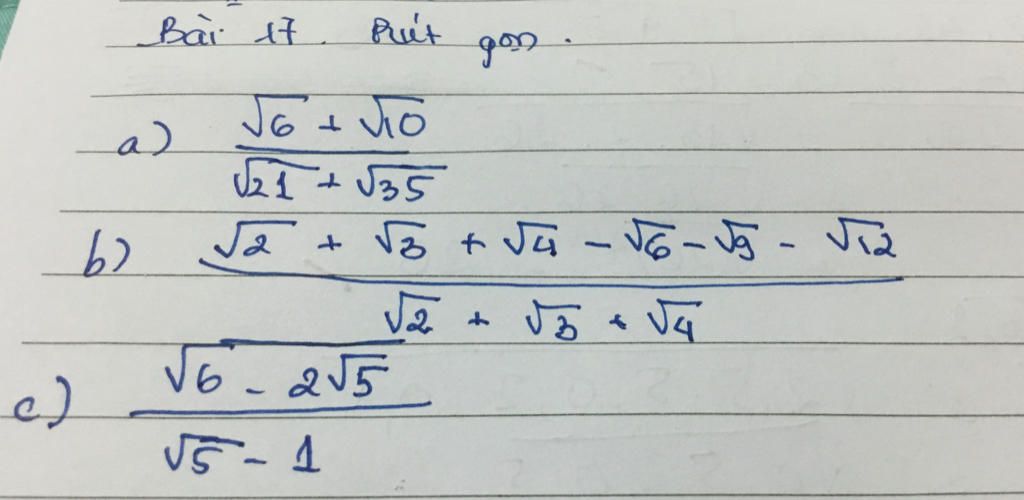 Bài 17. Rút gọn.
a) √6 + √10
√21 + √35
b) √2 + √3 + √4 - √6 - √9 - √12
√2 + √3 + √4
c) √(6 - 2√5)
√5 - 1